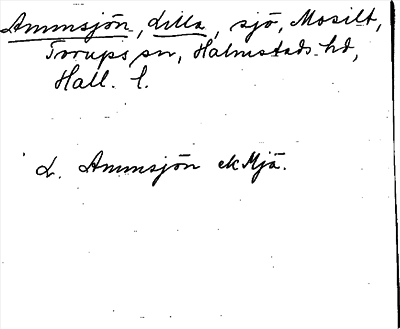 Ammsjön, Lilla, sjö, Mosilt,
Torups sn, Halmstads hd,
Hall. l.
L. Ammsjön ekMjä.